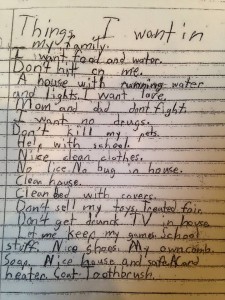 Things I want in
my family.
I want food and water.
Don't hit on me.
A house with running water
and lights. I want love.
Mom and did dont fight.
I want no drugs.
Don't kill my pets.
Help with school.
Nice clean clothes.
No lice. No bug in house.
Clean house.
Clean bed with covers.
Don't sell my toys. Treated fair.
Don't get drunk TV in house
let me keep my games school
stuff. Nice shoes. My own comb.
Soap. Nice house and safe AC and
heater. Coat Toothbrush.